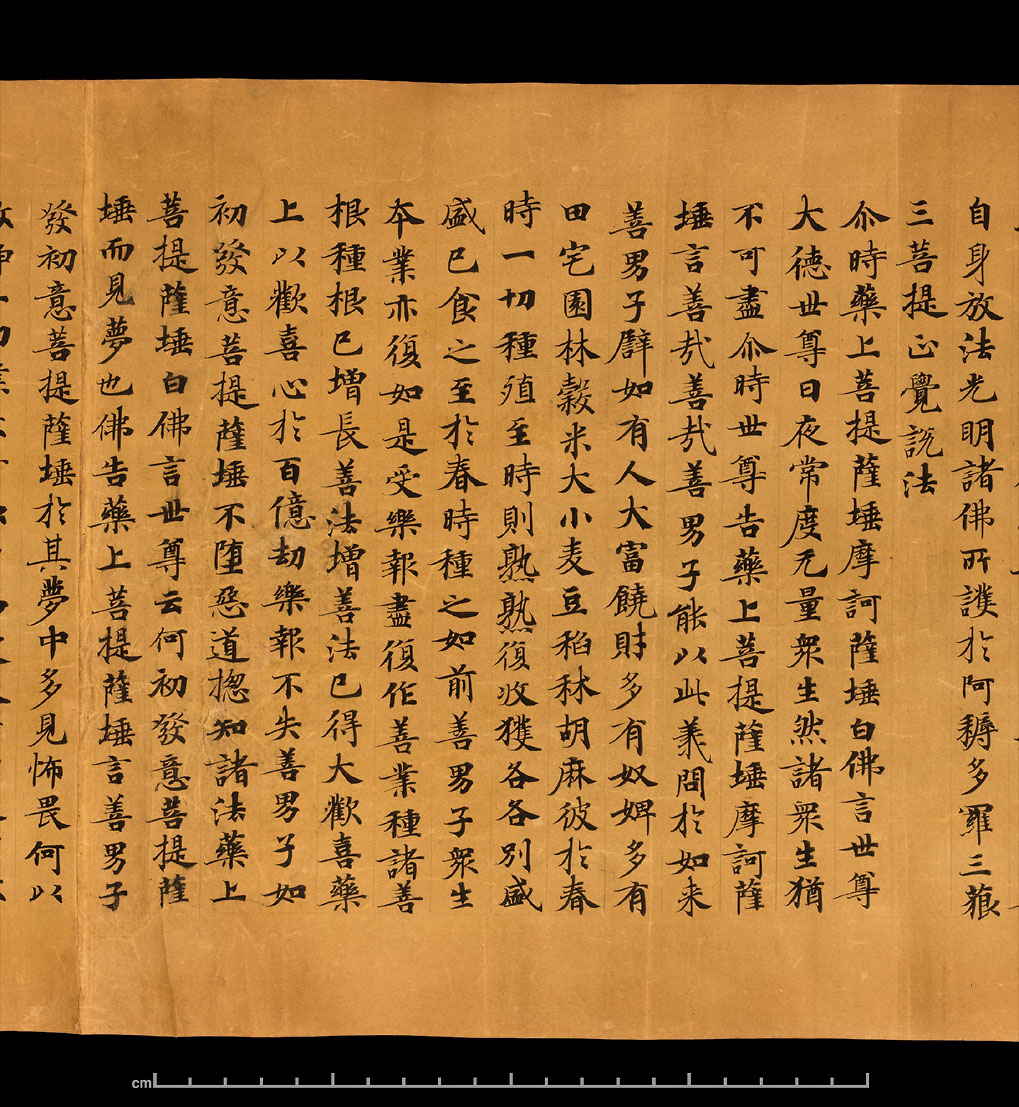 自身放法光明諸佛所護於阿耨多羅三藐
三菩提正覺說法
尒時藥上菩提薩埵摩訶薩埵白佛言世尊
大德世尊日夜常度无量眾生然諸眾生猶
不可盡尒時世尊告藥上菩提薩埵摩訶薩
埵言善哉善哉善男子能以此義問於如来
善男子譬如有人大富饒財多有奴婢多有
田宅園林穀米大小麦豆稻秫胡麻彼於春
時一切種殖至時則熟熟復收獲各各別盛
盛已食之至於春時種之如前善男子眾生
夲業亦復如是受樂報盡復作善業種諸善
根種根已增長善法增善法已得大歡喜藥
上以歡喜心於百億劫樂報不失善男子如
初發意菩提薩埵不墮惡道揔知諸法藥上
菩提薩埵白佛言世尊云何初發意菩提薩
埵而見夢也佛告藥上菩提薩埵言善男子
發初意菩提薩埵於其夢中多見怖畏何以